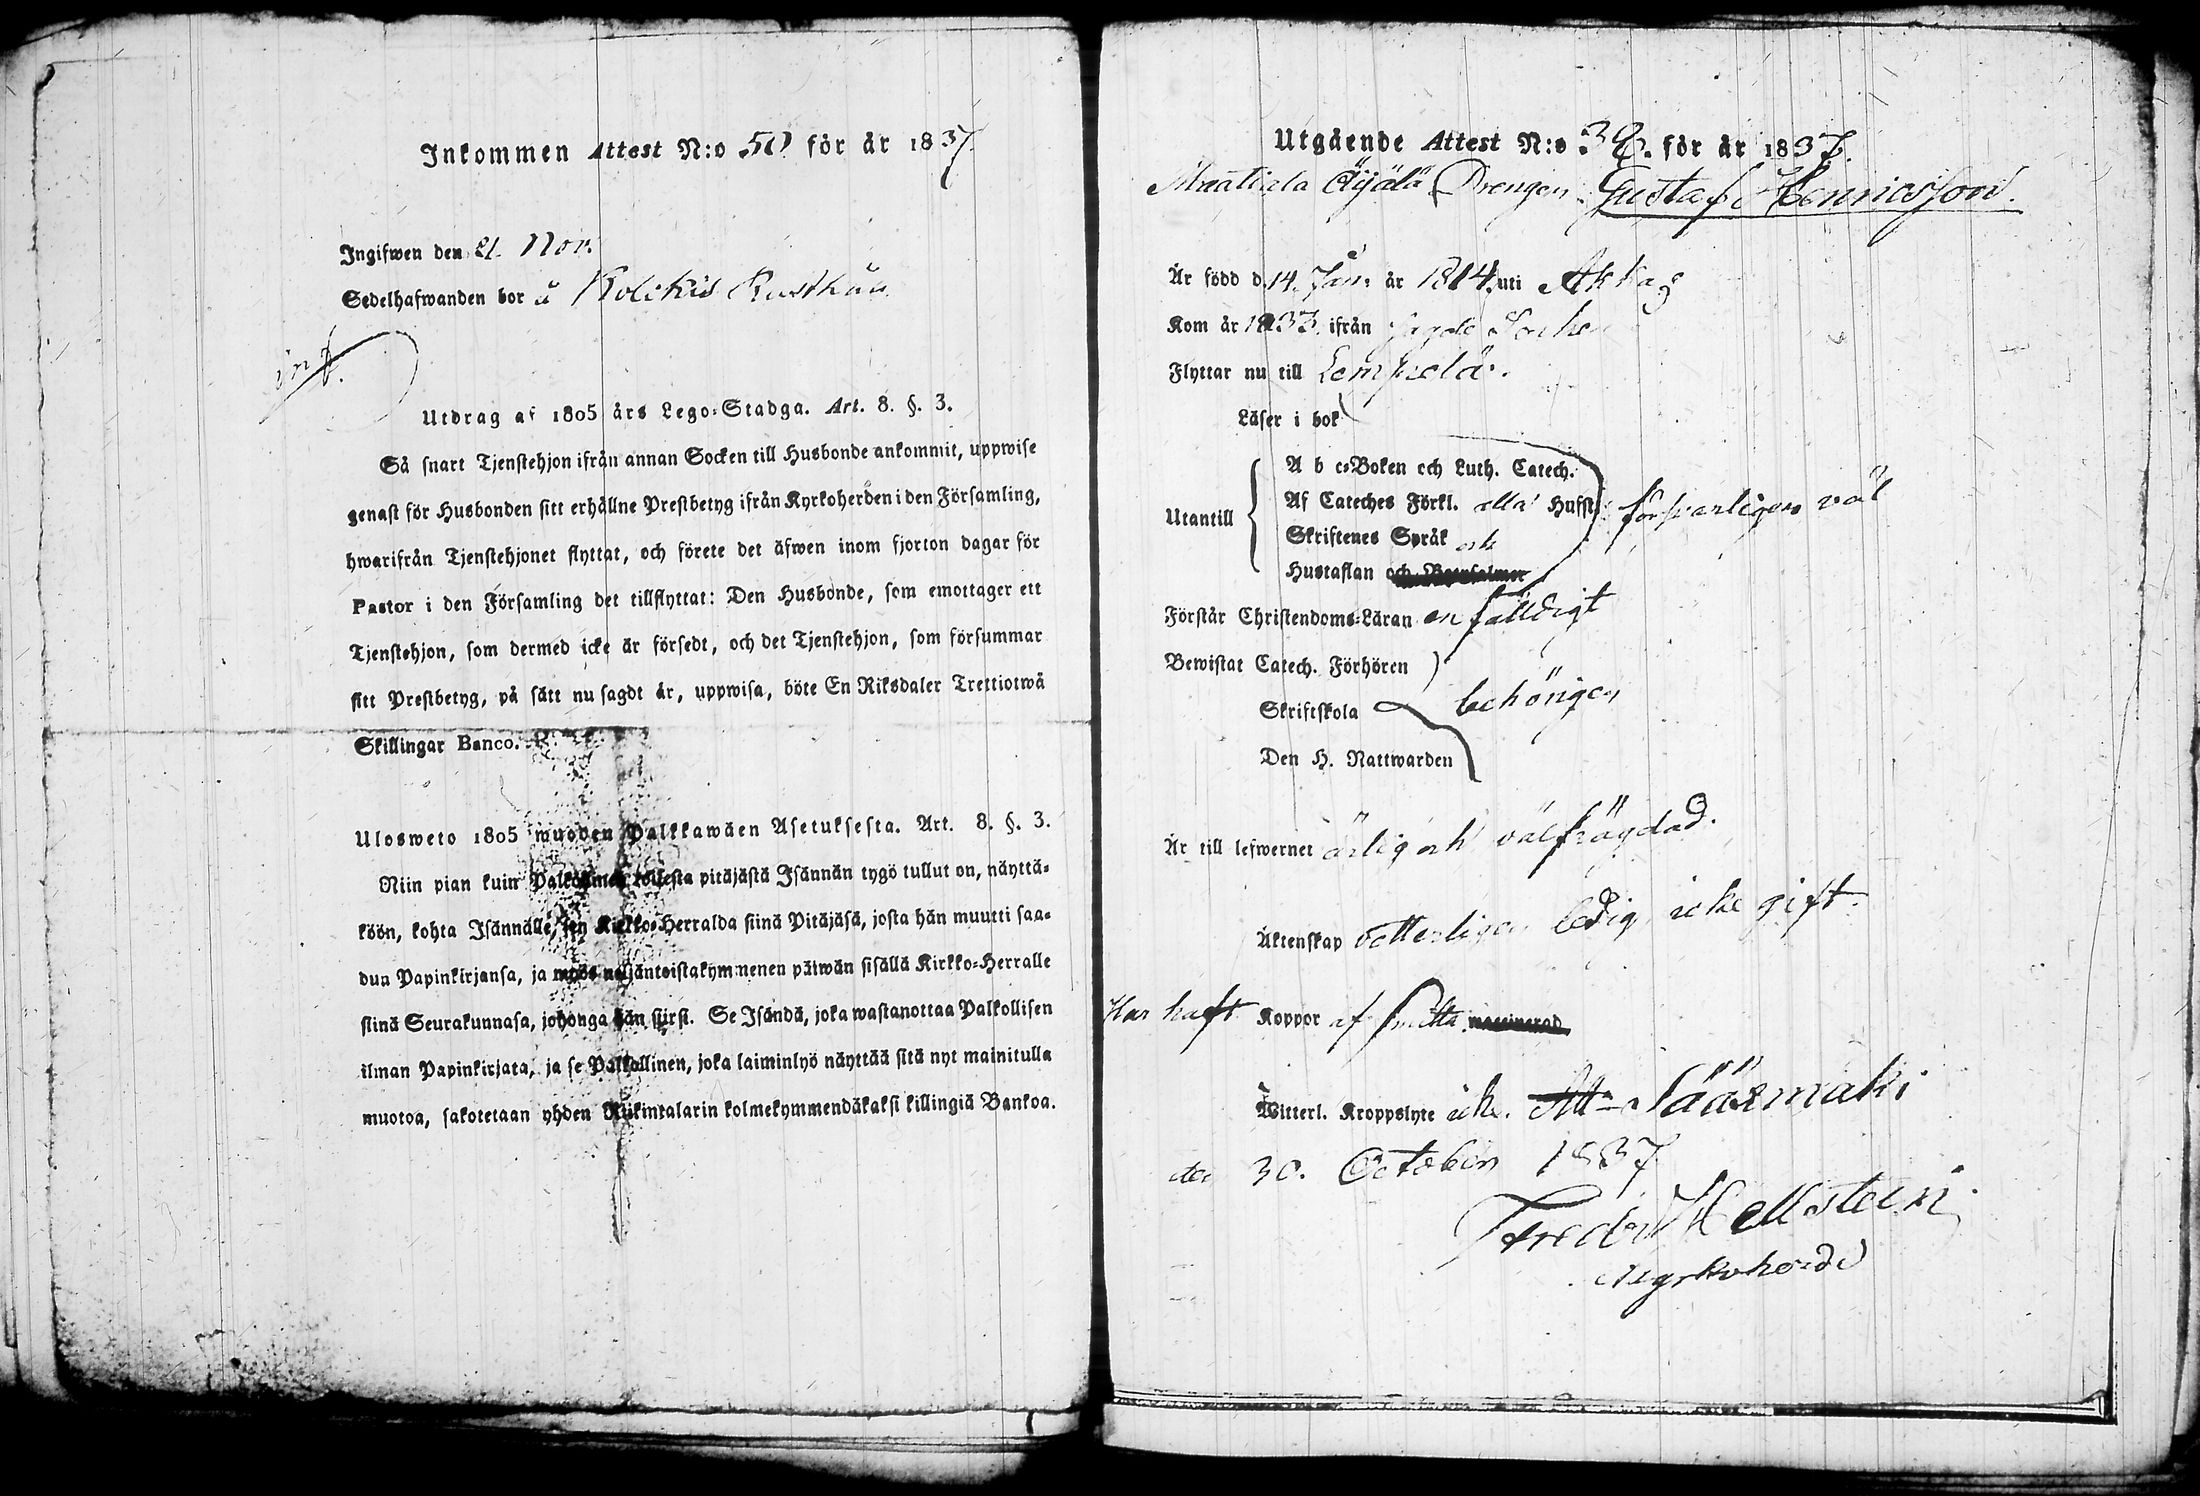 Inkommen Attest N:o 50 för år 1837.
Ingifwen den 21. Nov.
Sedelhafwanden bor å Kolckis Rusthåll
inf.
Utdrag af 1805 års Lego-Stadga. Art. 8. §. 3.
Så snart Tjenstehjon ifrån annan Socken till Husbonde ankommit, uppwise
genast för Husbonden sitt erhållne Prestbetyg ifrån Kyrkoherden i den Församling,
hwarifrån Tjenstehjonet flyttat, och förete det äfwen inom fjorton dagar för
Pastor i den Församling det tillflyttat: Den Husbonde, som emottager ett
Tjenstehjon, som dermed icke är försedt, och det Tjenstehjon, som försummar
sitt Prestbetyg, på sätt nu sagdt är, uppwisa, böte En Riksdaler Trettiotwå
Skillingar Banco.
Ulosweto 1805 wuoden Palkkawäen Asetuksesta. Art. 8. §. 3.
Niin pian kuin Palkollinen toisesta pitäjästä Isännän tygö tullut on, näyttä-
köön, kohta Isännälle, sen Kirkko-Herralda siinä Pitäjäsä, josta hän muutti saa-
dun Papinkirjansa, ja myös neljäntoistakymmenen päiwän sisällä Kirkko-Herralle
siinä Seurakunnasa, johonga hän siirsi. Se Isändä, joka wastanottaa Palkollisen
ilman Papinkirjata, ja se Palkollinen, joka laiminlyö näyttää sitä nyt mainitulla
muotoa, sakotetaan yhden Riikintalarin kolmekymmendäkaksi killingiä Bankoa.
Utgående Attest N:o 38. för år 1837.
Maatiala Äijälä Drengen Gustaf Henricsson.
Är född d. 14. Jan. år 1814. uti Akkas
Kom år 1833. ifrån sagde Socken
Flyttar nu till Lempälä.
Läser i bok
A b c-Boken och Luth. Catech.
Utantill Af Cateches Förkl. alla Hufst. försvarligen väl
Skriftenes Språk och
Hustaflan och Botpsalmer
Förstår Christendoms-Läran enfalldigt
Bewistat Catech. Förhören
Skriftskola behörigen
Den H. Nattwarden
Är till lefwernet ärlig och välfrägdad.
Äktenskap vetterligen ledig, icke gift.
Har haft Koppor af smitta. waccinerad
Witterl. Kroppslyte icke. Att- Sääxmäki
den 30. October 1837
Fredr Hellsteen.
Kyrkoherde